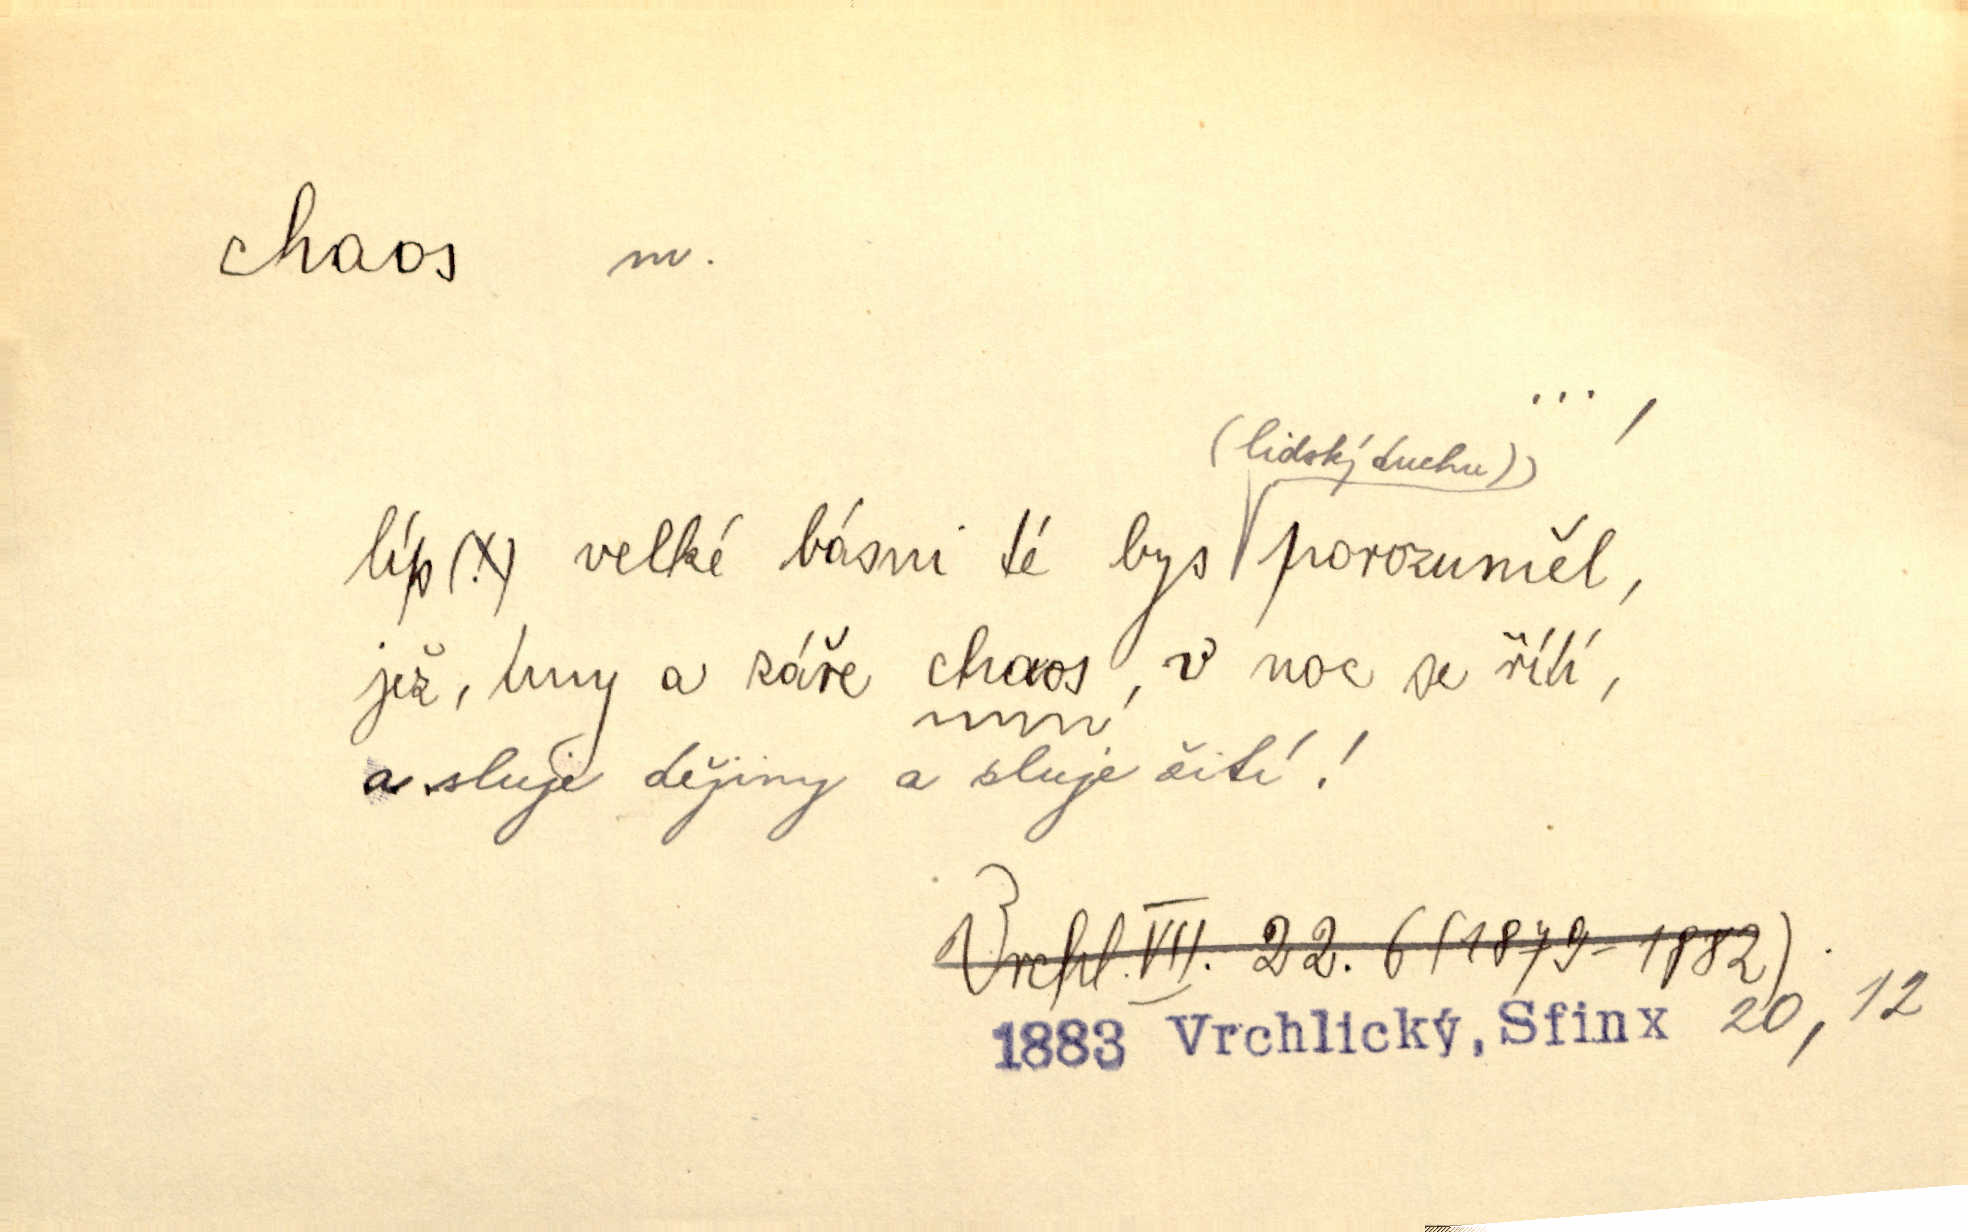 chaos m.
... ,
(lidský duchu))
líp (!) velké básni té bys porozuměl,
jež, tmy a záře chaos, v noc se řítí,
a sluje dějiny a sluje žití!
Vrchl. VII. 22. 6 (1879-1882).
1883 Vrchlický, Sfinx 20, 12